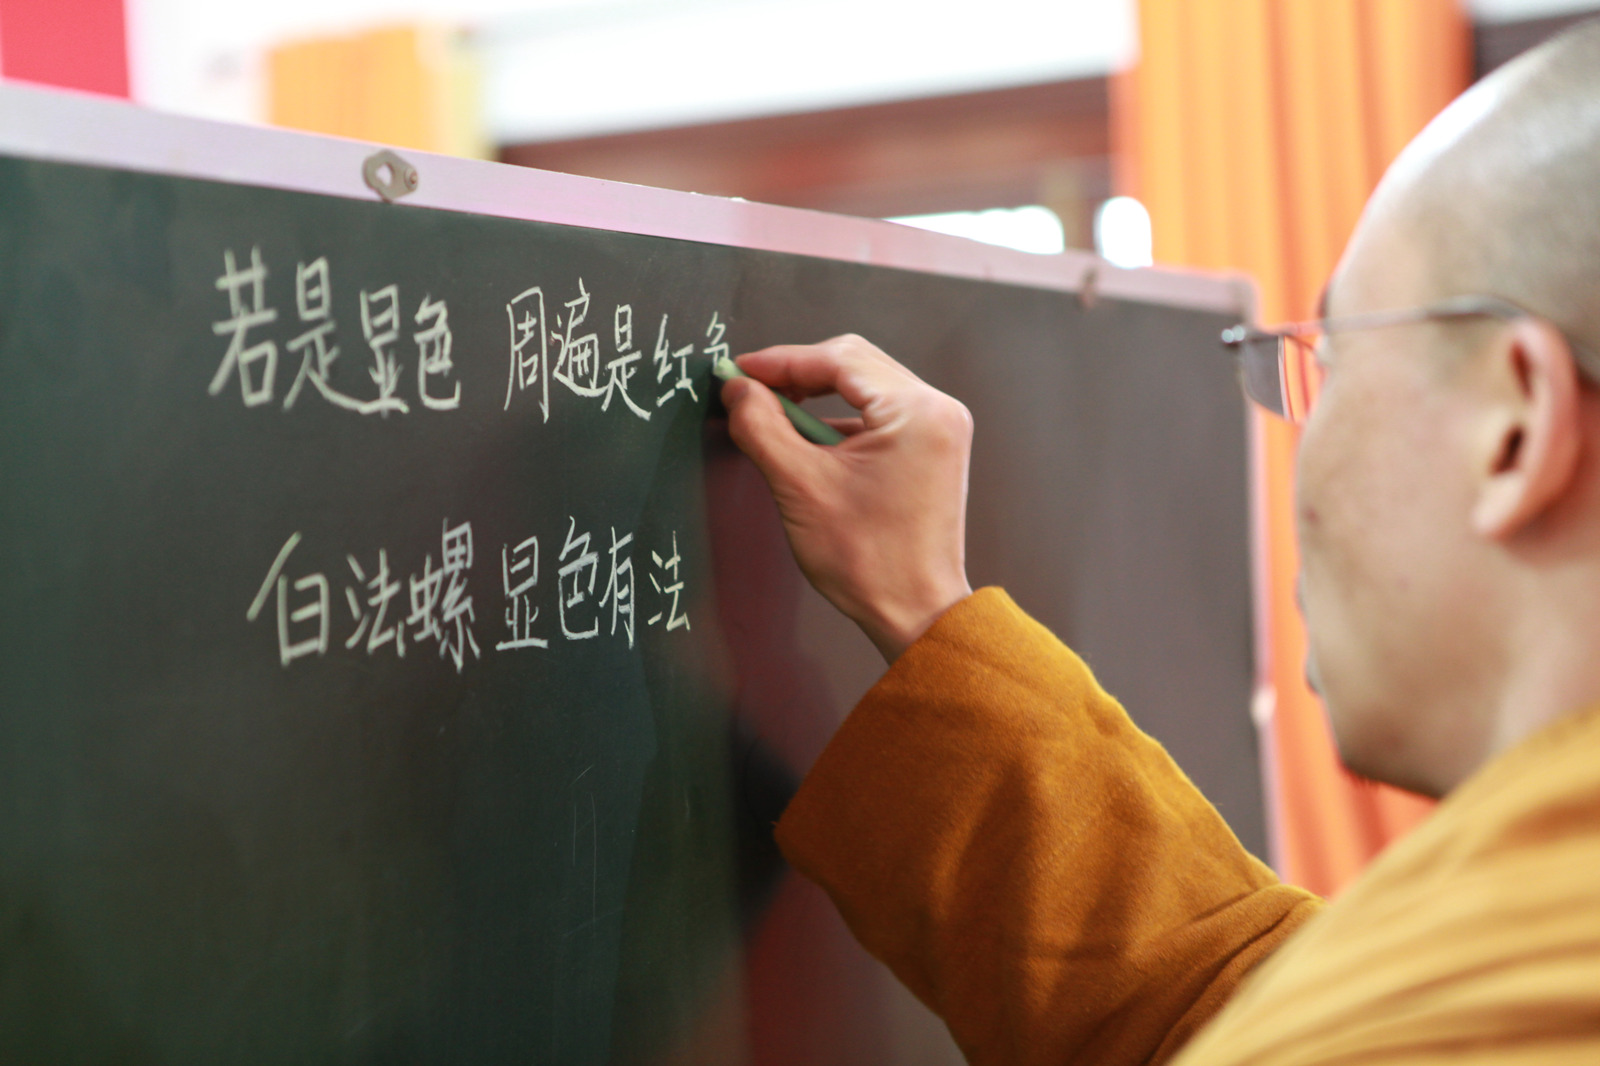 若是显色 周遍是红色
白法螺显色有法